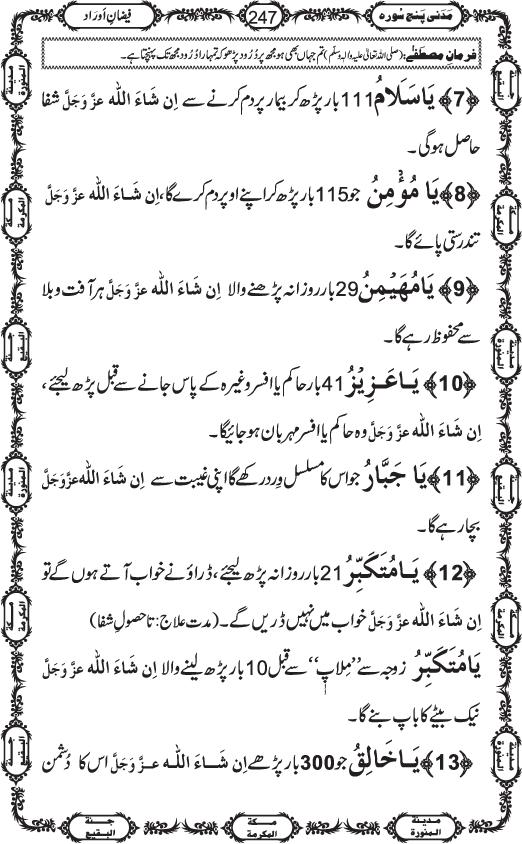 مَدَنی پنج سُوره 247 فیضانِ اَوراد
فرمانِ مصطَفٰے: (صلی اللہ تعالیٰ علیہ والہ وسلّم) تم جہاں بھی ہو مجھ پر دُرُود پڑھو کہ تمہارا دُرُود مجھ تک پہنچتا ہے۔
﴿7﴾ یَاسَلَامُ 111 بار پڑھ کر بیمار پر دم کرنے سے اِن شَاءَ اللہ عزَّ وَجَلَّ شِفا
حاصل ہوگی۔
﴿8﴾ یَا مُؤْمِنُ جو 115 بار پڑھ کر اپنے اوپر دم کرے گا، اِن شَاءَ اللہ عزَّ وَجَلَّ
تندرستی پائے گا۔
﴿9﴾ یَامُھَیْمِنُ 29 بار روزانہ پڑھنے والا اِن شَاءَ اللہ عزَّ وَجَلَّ ہر آفت و بلا
سے محفوظ رہے گا۔
﴿10﴾ یَاعَزِیْزُ 41 بار حاکم یا افسر وغیرہ کے پاس جانے سے قبل پڑھ لیجئے،
اِن شَاءَ اللہ عزَّ وَجَلَّ وہ حاکم یا افسر مہربان ہو جائیگا۔
﴿11﴾ یَا جَبَّارُ جو اس کا مسلسل وِرد رکھے گا اپنی غیبت سے اِن شَاءَ اللہ عزَّ وَجَلَّ
بچا رہے گا۔
﴿12﴾ یَامُتَکَبِّرُ 21 بار روزانہ پڑھ لیجئے، ڈراؤنے خواب آتے ہوں گے تو
اِن شَاءَ اللہ عزَّ وَجَلَّ خواب میں نہیں ڈریں گے۔ (مدت علاج: تا حصولِ شفا)
یَامُتَکَبِّرُ زوجہ سے ”مِلاپ“ سے قبل 10 بار پڑھ لینے والا اِن شَاءَ اللہ عزَّ وَجَلَّ
نیک بیٹے کا باپ بنے گا۔
﴿13﴾ یَاخَالِقُ جو 300 بار پڑھے اِن شَاءَ اللہ عزَّ وَجَلَّ اس کا دُشمن
جنة البقیع
مکة المکرمة
مدینة المنورة
جنة البقیع
مکة المکرمة
مدینة المنورة
مدینة المنورة
مکة المکرمة
جنة البقیع
مدینة المنورة
مکة المکرمة
جنة البقیع
مدینة المنورة
مکة المکرمة
جنة البقیع